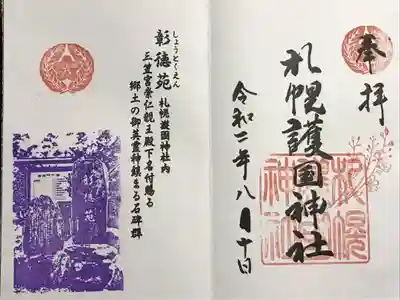 奉拝
札幌護国神社
令和二年八月十日
しょうとくえん
彰徳苑 札幌護国神社内
三笠宮崇仁親王殿下名付賜る
郷土の御英霊神鎮まる石碑群
彰徳苑